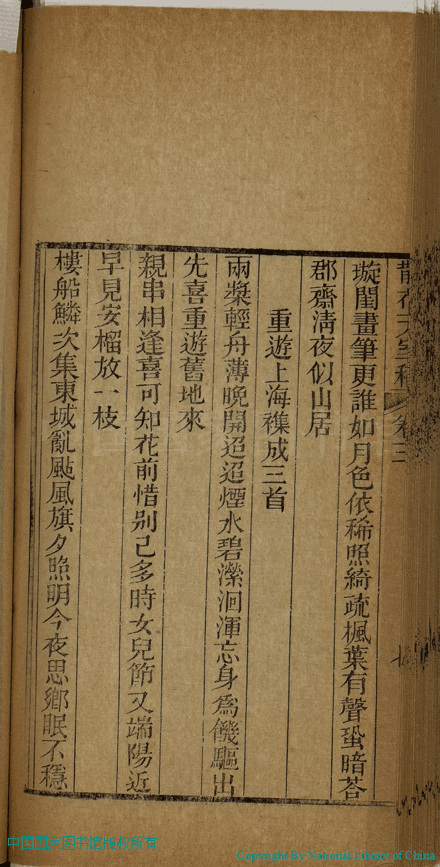 散花天室稿 卷三
璇閨畫筆更誰如月色依稀照綺疏楓葉有聲蛩暗荅
郡齋淸夜似山居
重遊上海襍成三首
兩槳輕舟薄晚開迢迢煙水碧瀠洄渾忘身爲饑驅出
先喜重遊舊地來
親串相逢喜可知花前惜別已多時女兒節又端陽近
早見安榴放一枝
樓船鱗次集東城亂颭風旗夕照明今夜思鄉眠不穩
中国国家图书馆版权所有
Copyright By National Library of China